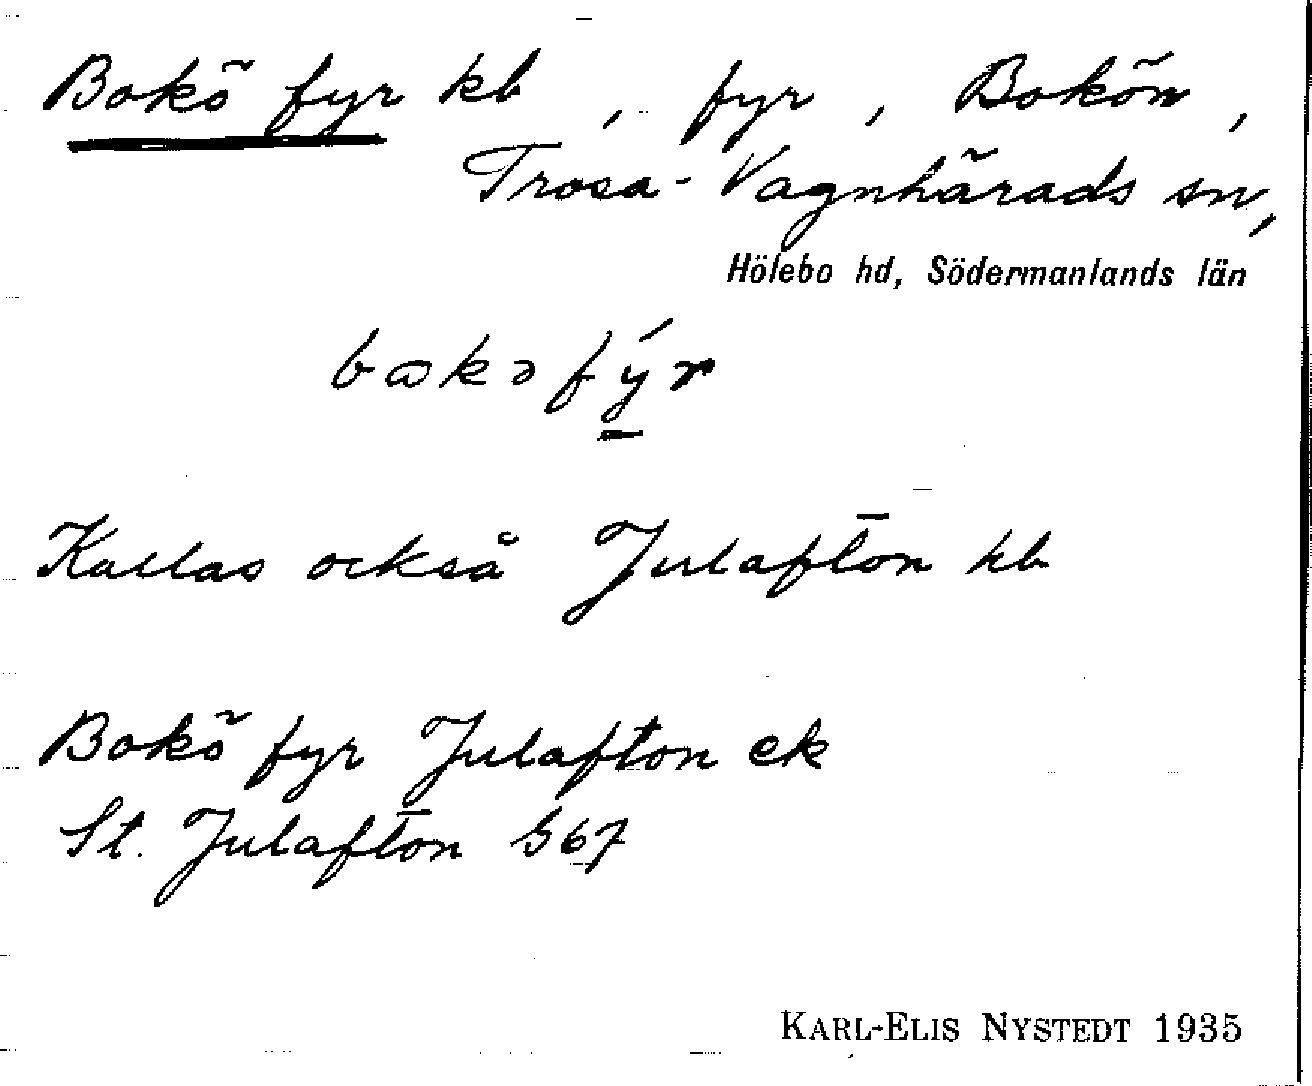 Bokö fyr kb, fyr, Bokön,
Trosa-Vagnhärads sn,
Hölebo hd, Södermanlands län
bɷkəfýr
Kallas också Julafton kb
Bokö fyr Julafton ek
St. Julafton S67
KARL-ELIS NYSTEDT 1935